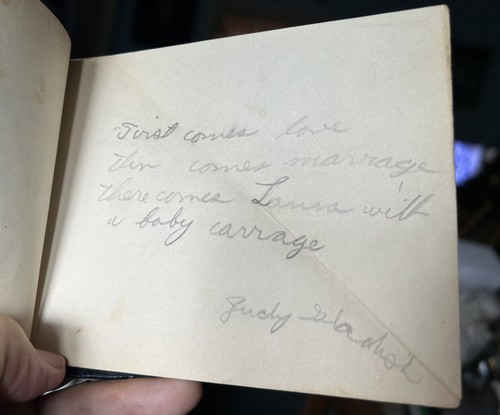 "First comes love
then comes marrage
there comes Laura with
a baby carrage
Judy Gladish